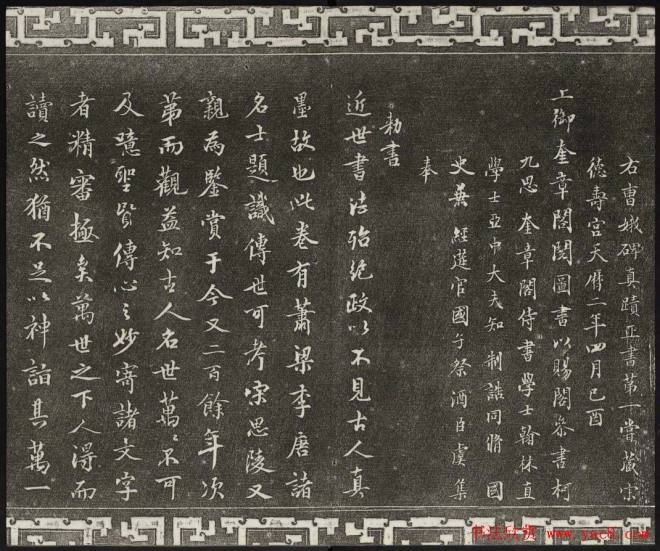 右曹娥碑真蹟正書第一嘗藏宋
德壽宮天曆二年四月己酉
上御奎章閣閱圖書以賜閣參書柯
九思 奎章閣侍書學士翰林直
學士亞中大夫知 制誥同脩 國
史兼 經筵官國子祭酒臣虞集
奉
勑書
近世書法殆絕政以不見古人真
墨故也此卷有蕭梁李唐諸
名士題識傳世可考宋思陵又
親為鑒賞于今又二百餘年次
第而觀益知古人名世萬萬不可
及噫聖賢傳心之妙寄諸文字
者精審極矣萬世之下人得而
讀之然猶不足以神詣其萬一
书法欣赏 www.yac8.com